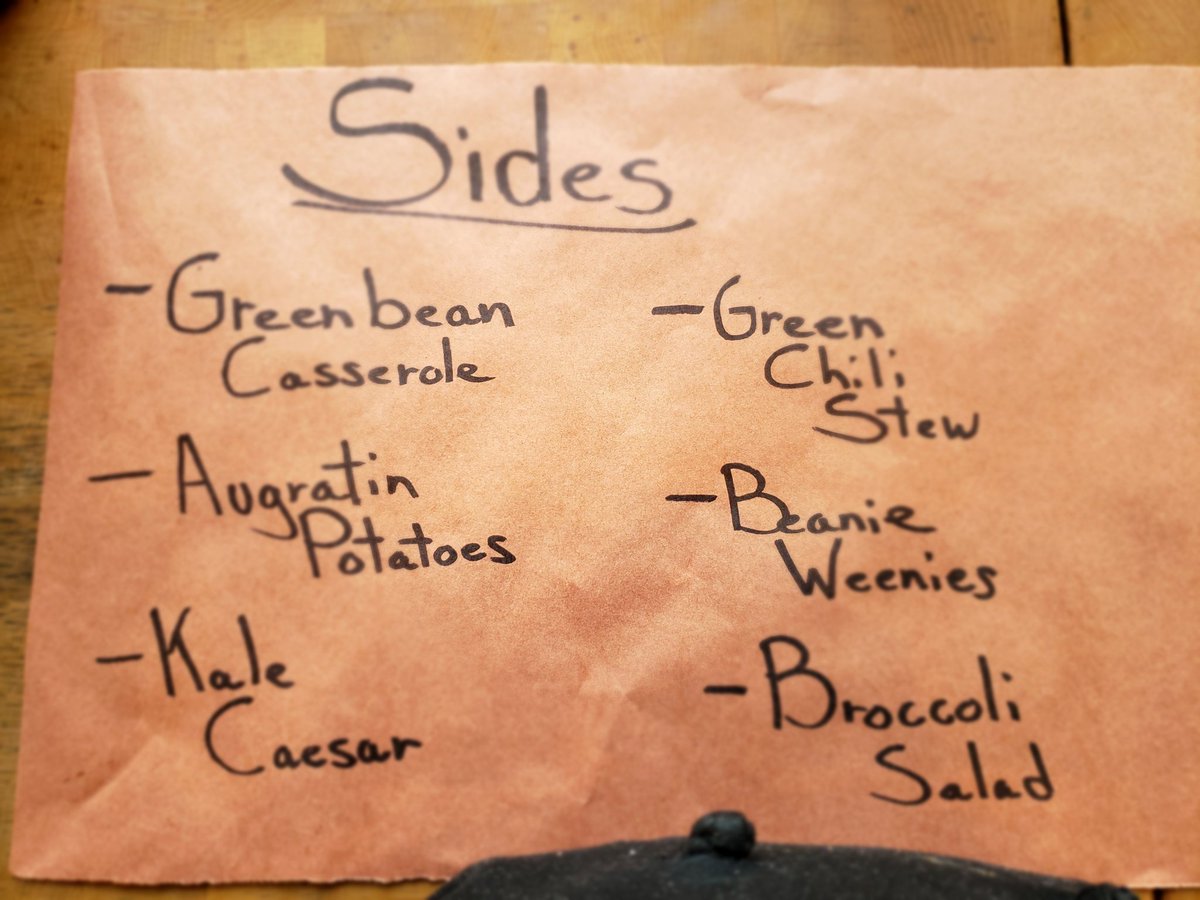 Sides
- Greenbean
Casserole
- Augratin
Potatoes
- Kale
Caesar
- Green
Chili
Stew
- Beanie
Weenies
- Broccoli
Salad